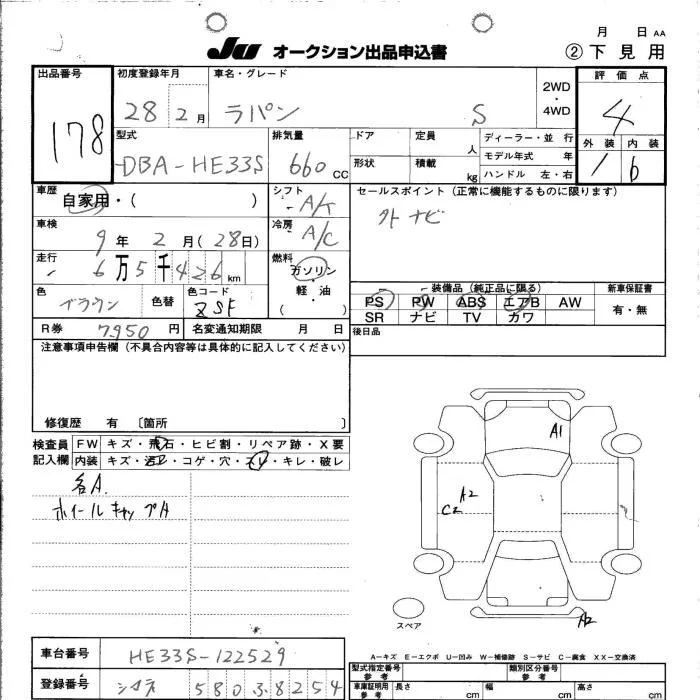 月 日 AA
JU オークション出品申込書
② 下見用
出品番号 178
初度登録年月 28 2月
車名・グレード ラパン S
2WD・4WD
評価点 4
外装 1 内装 b
型式 DBA-HE33S
排気量 660 CC
ドア 定員 人
形状 積載 kg
ディーラー・並行
モデル年式 年
ハンドル 左・右
車歴 自家用・( )
シフト A/T
セールスポイント (正常に機能するものに限ります)
外ナビ
車検 9年 2月 (28日)
冷房 A/C
走行 6万5千426 km
燃料 ガソリン 軽・油 ( )
色 ブラウン 色替 色コード ZSF
装備品 (純正品に限る)
PS PW ABS エアB AW
SR ナビ TV カワ
新車保証書 有・無
R券 7950円 名変通知期限 月 日
後日品
注意事項申告欄 (不具合内容等は具体的に記入してください)
修復歴 有 〔箇所 〕
検査員記入欄
FW キズ・飛石・ヒビ割・リペア跡・X要
内装 キズ・汚レ・コゲ・穴・スレ・キレ・破レ
各A.
ホイールキャップA
A1
A2
C2
A2
スペア
A-キズ E-エクボ U-凹み W-補修跡 S-サビ C-腐食 XX-交換済
車台番号 HE33S-122529
型式指定番号 参考
類別区分番号 参考
登録番号 580 38254
車庫証明用 参考 長さ cm 幅 cm 高さ cm